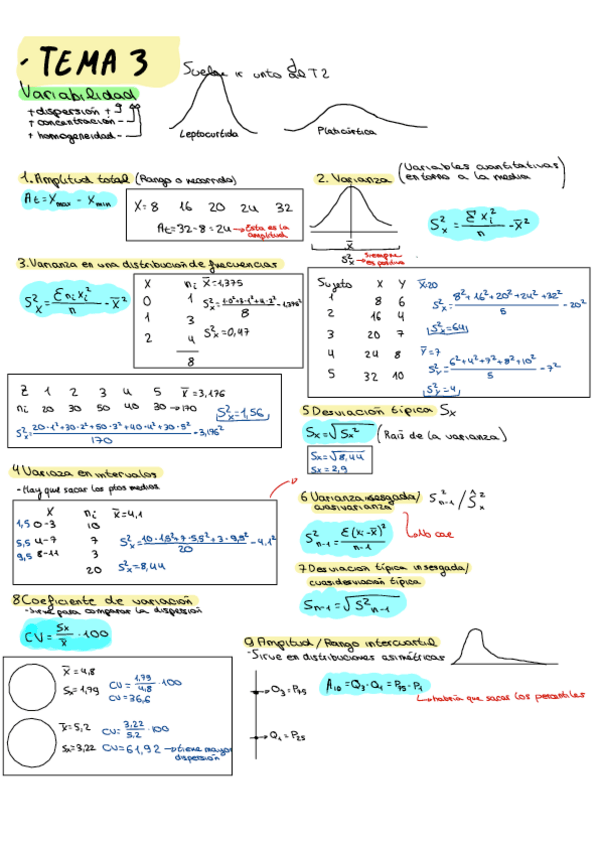 · TEMA 3
Suele ir junto al T2
Variabilidad
+ dispersión + g
+ concentración -
+ homogeneidad -
Leptocúrtida
Platicúrtica
1. Amplitud total (Rango o recorrido)
At = Xmax - Xmin
X = 8 16 20 24 32
At = 32 - 8 = 24 → Esta es la amplitud.
2. Varianza (Variables cuantitativas) (entorno a la media)
x̄
S²x → Siempre es positiva
S²x = Σxi²/n - x̄²
3. Varianza en una distribución de frecuencias
S²x = Σni xi²/n - x̄²
X ni x̄ = 1,375
0 1
1 3
2 4
8
S²x = 1·0²+3·1²+4·2²/8 - 1,375²
S²x = 0,47
Sujeto X Y x̄=20
1 8 6
2 16 4
3 20 7
4 24 8
5 32 10
S²x = 8²+16²+20²+24²+32²/5 - 20²
S²x = 64
ȳ = 7
S²y = 6²+4²+7²+8²+10²/5 - 7²
S²y = 4
Z 1 2 3 4 5 x̄ = 3,176
ni 20 30 50 40 30 → 170
S²x = 1,56
S²x = 20·1²+30·2²+50·3²+40·4²+30·5²/170 - 3,176²
5 Desviación típica Sx
Sx = √Sx² (Raíz de la varianza)
Sx = √8,44
Sx = 2,9
4 Variaza en intervalos
- Hay que sacar los ptos medios
X ni x̄ = 4,1
1,5 0-3 10
5,5 4-7 7
9,5 8-11 3
20
S²x = 10·1,5²+7·5,5²+3·9,5²/20 - 4,1²
S²x = 8,44
6 Varianza insesgada/ cuasivarianza S²n-1 / Ŝ²x
S²n-1 = Σ(xi-x̄)²/n-1
No cae
7 Desviación típica insesgada/ cuasidesviación típica
Sn-1 = √S²n-1
8 Coeficiente de variación
- Sirve para comparar la dispersión
CV = Sx/x̄ · 100
x̄ = 4,8
Sx = 1,79
CV = 1,79/4,8 · 100
CV = 36,6
x̄ = 5,2
Sx = 3,22
CV = 3,22/5,2 · 100
CV = 61,92 → tiene mayor dispersión
9 Amplitud / Rango intercuartil
- Sirve en distribuciones asimétricas
Q3 = P75
Q1 = P25
A10 = Q3 - Q1 = P75 - P1
habría que sacar los percentiles